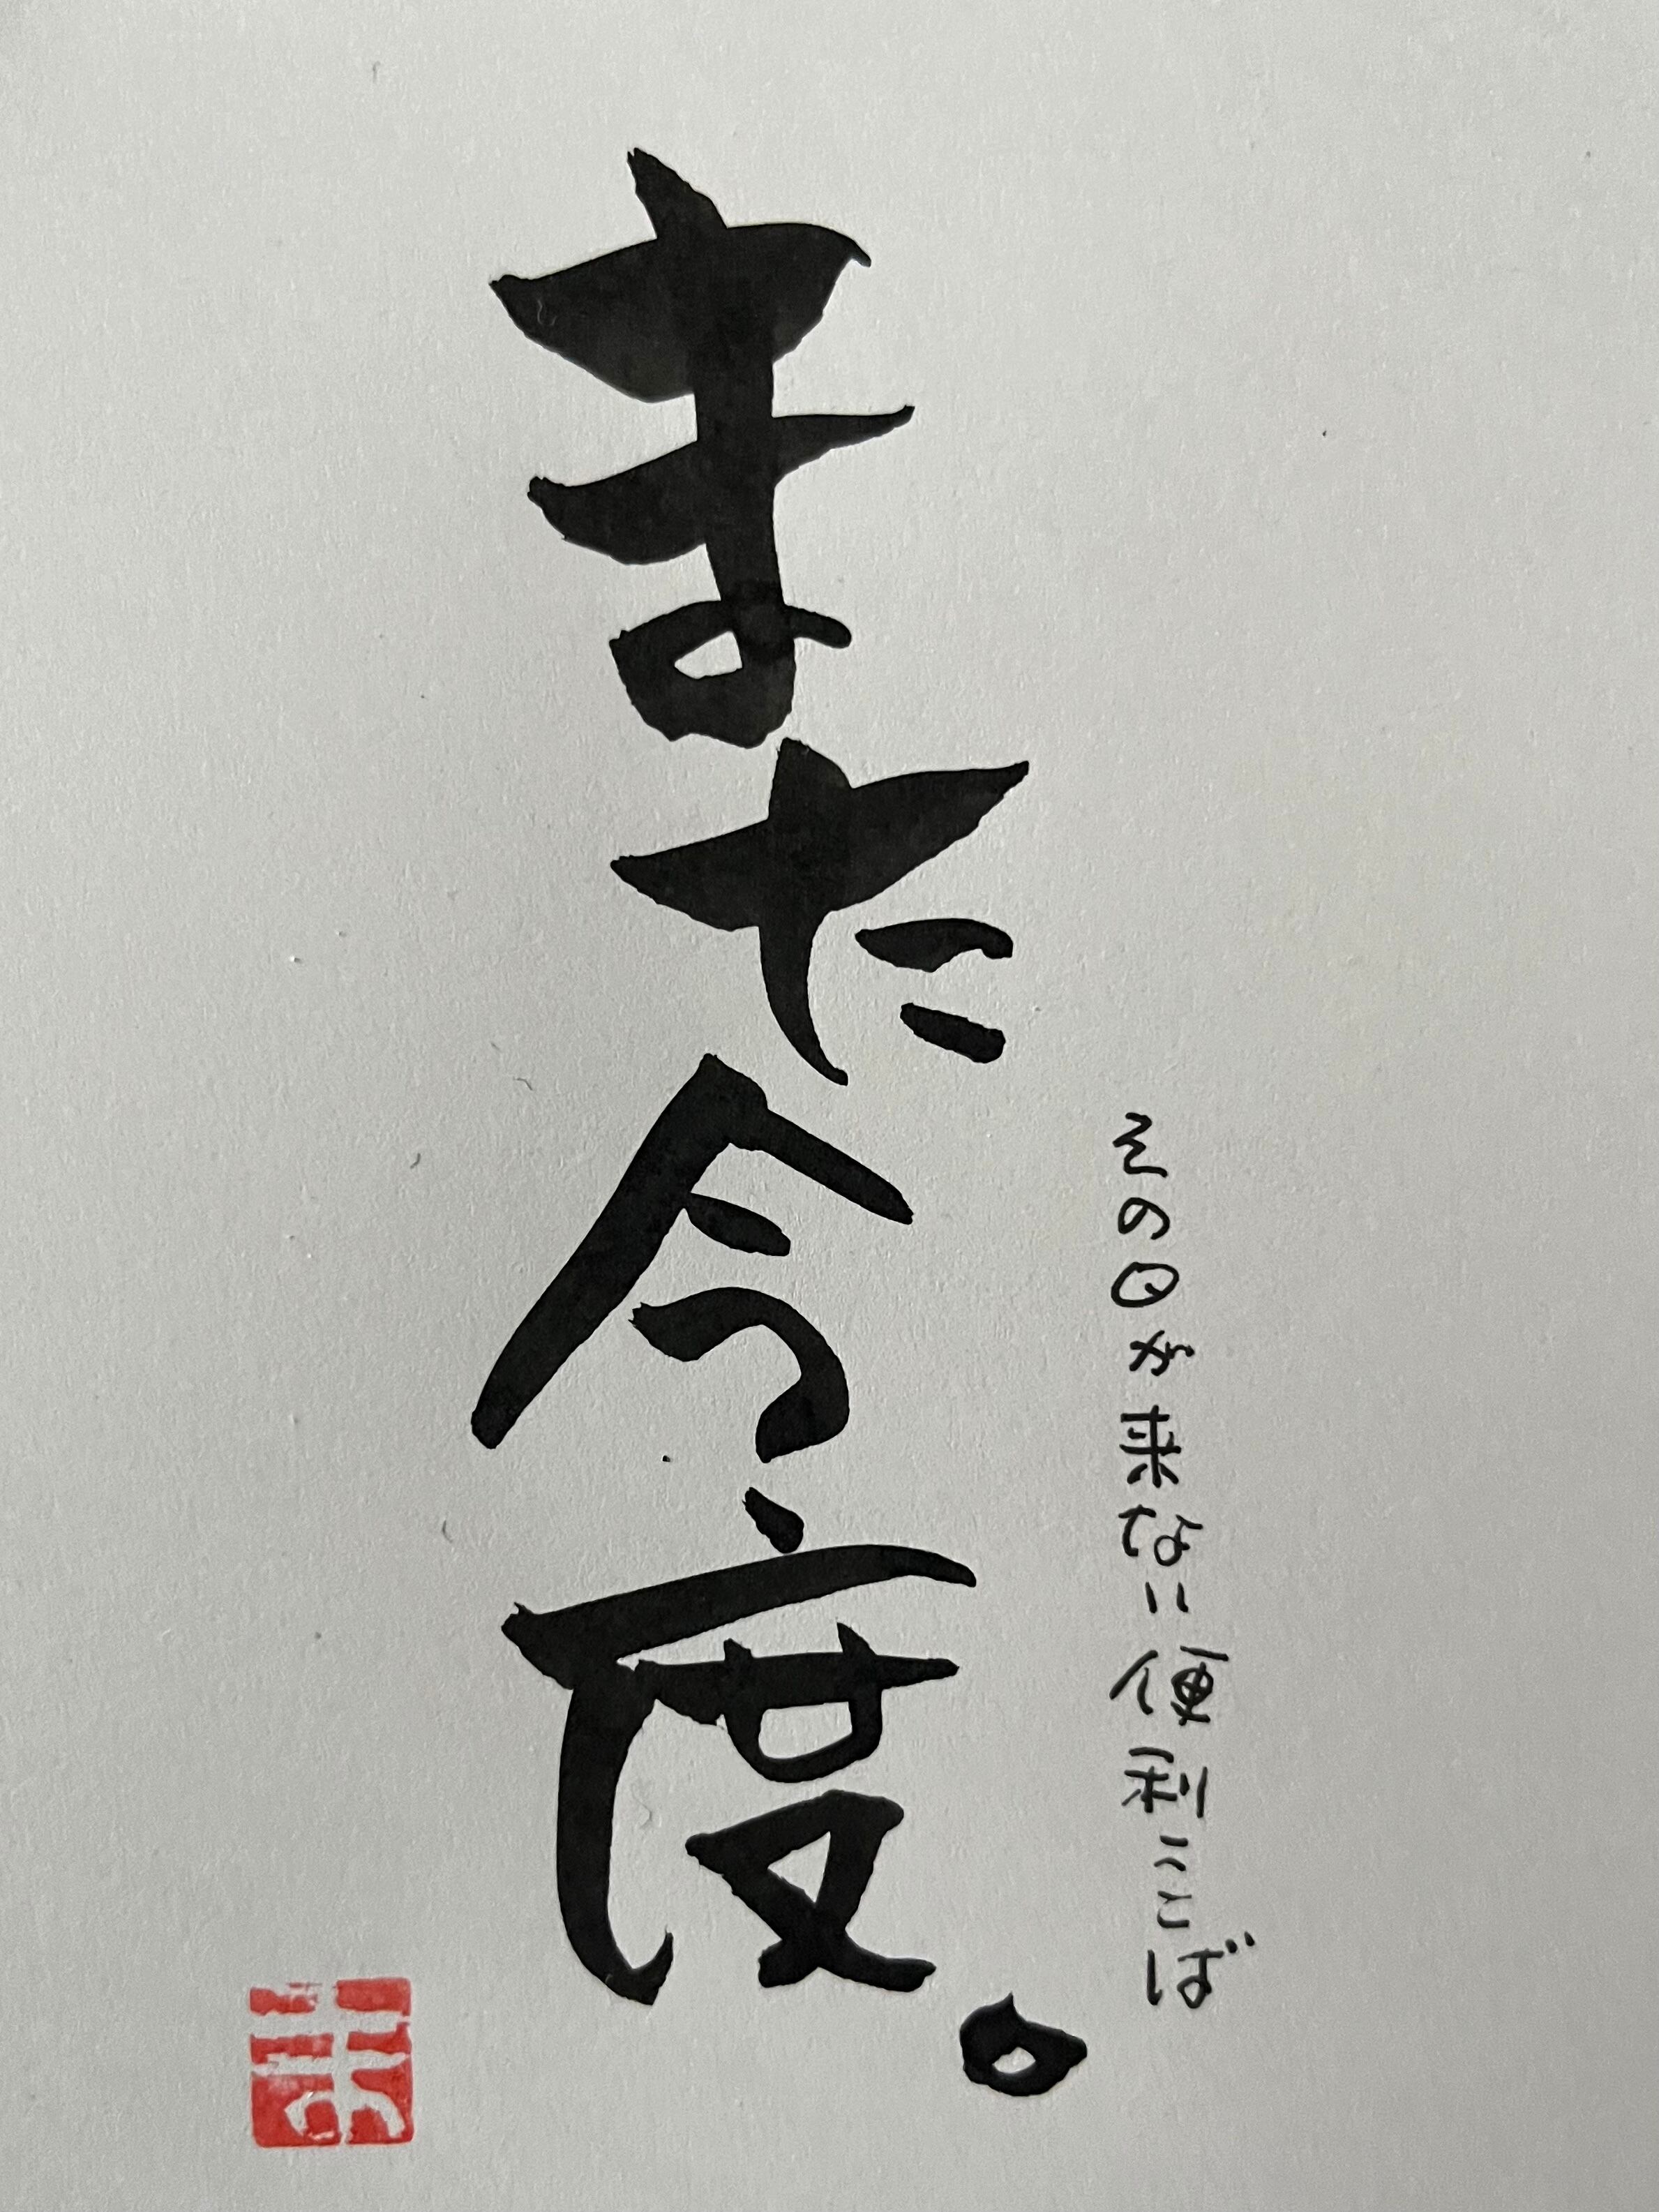 その日が来ない便利ことば
また今度。